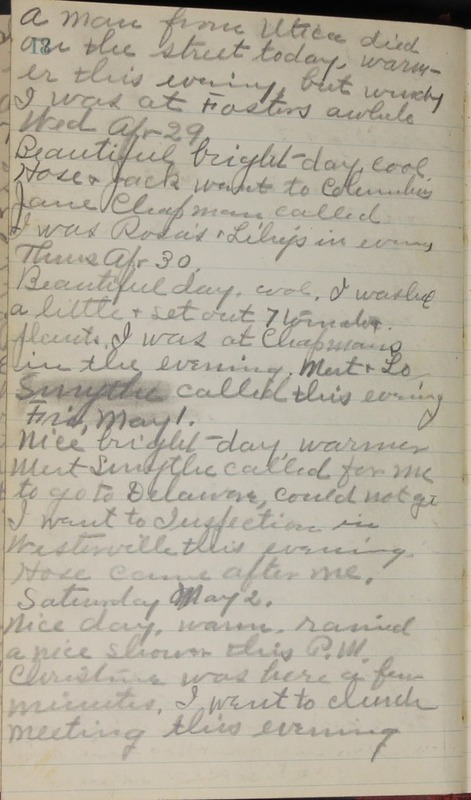 A man from Utica died
18
on the street today, warm-
er this evening, but windy
I was at Fosters awhile
Wed Apr 29
Beautiful bright day, cool
Hose + Jack went to Columbus
Jane Chapman called
I was Rosa's + Libp's in evening
Thurs Apr 30
Beautiful day. cool. I washed
a little + set out 7 tomatoe
plants. I was at Chapmans
in the evening. Mert + Lo
Smythe called this evening
Fri, May 1.
Nice bright day, warmer
Mert Smythe called for me
to go to Delaware, could not go
I went to Inspection in
Westerville this evening
Hose came after me.
Saturday May 2.
Nice day, warm. rained
a nice shower this P.M.
Christine was here a few
minutes. I went to church
meeting this evening